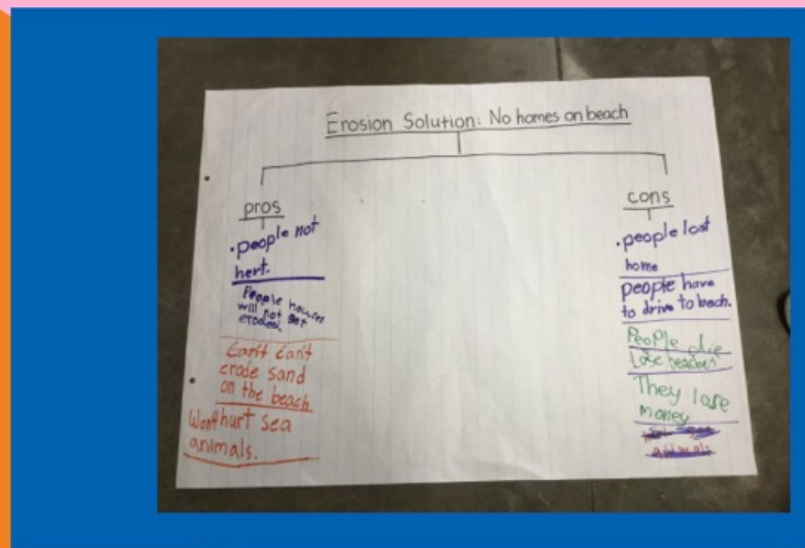 Erosion Solution: No homes on beach
pros
.people not
hert.
People houses
will not get
eroded.
Can't Can't
erode sand
on the beach
Won't hurt sea
animals.
cons
.people lost
home
people have
to drive to bech.
People die
Lose beaches
They lose
money
animals